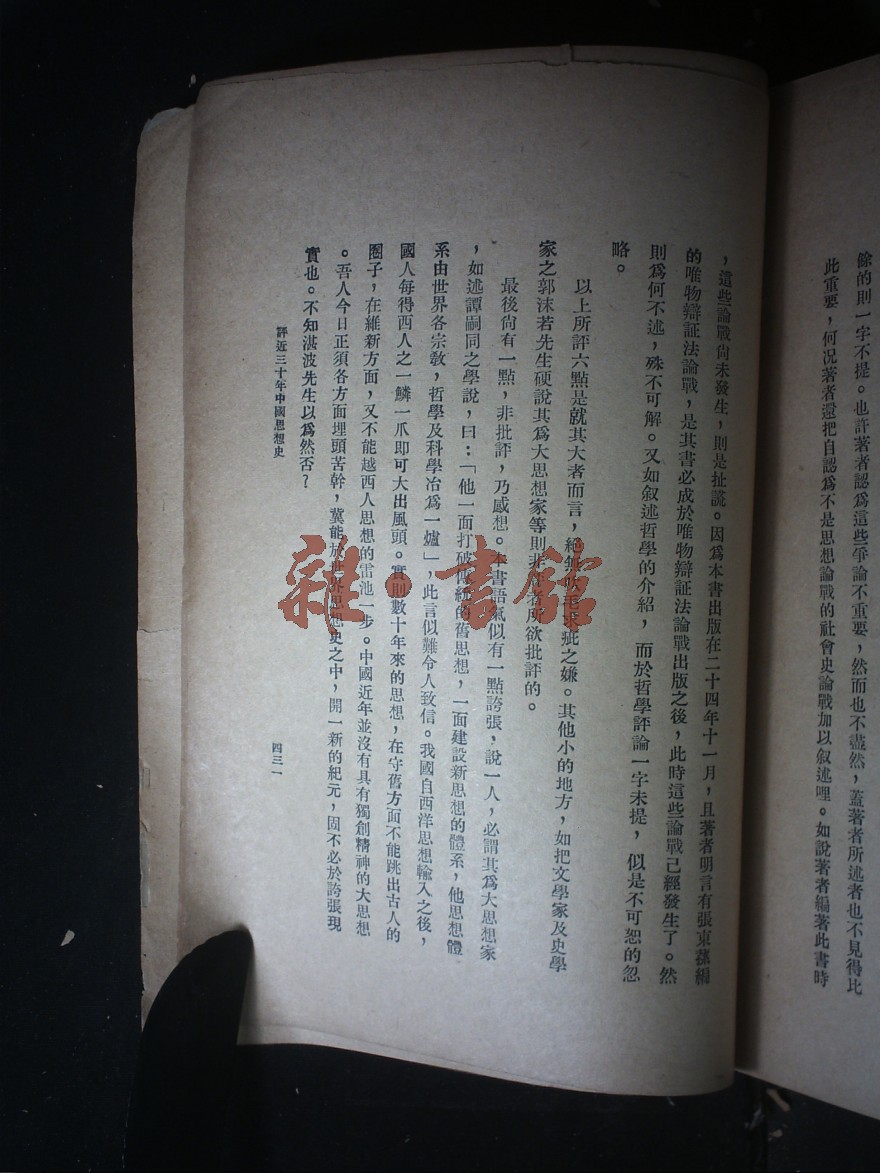 餘的則一字不提。也許著者認爲這些爭論不重要，然而也不盡然，蓋著者所述者也不見得比
此重要，何況著者還把自認爲不是思想論戰的社會史論戰加以叙述哩。如說著者編著此書時
，這些論戰尙未發生，則是扯謊。因爲本書出版在二十四年十一月，且著者明言有張東蓀編
的唯物辯証法論戰，是其書必成於唯物辯証法論戰出版之後，此時這些論戰已經發生了。然
則爲何不述，殊不可解。又如叙述哲學的介紹，而於哲學評論一字未提，似是不可恕的忽
略。
以上所評六點是就其大者而言，絕無吹毛求疵之嫌。其他小的地方，如把文學家及史學
家之郭沫若先生硬說其爲大思想家等則非作者所欲批評的。
最後尙有一點，非批評，乃感想。本書語氣似有一點誇張，說一人，必謂其爲大思想家
，如述譚嗣同之學說，曰：「他一面打破傳統的舊思想，一面建設新思想的體系，他思想體
系由世界各宗敎，哲學及科學冶爲一爐」，此言似難令人致信。我國自西洋思想輸入之後，
國人每得西人之一鱗一爪即可大出風頭。實則數十年來的思想，在守舊方面不能跳出古人的
圈子，在維新方面，又不能越西人思想的雷池一步。中國近年並沒有具有獨創精神的大思想
。吾人今日正須各方面埋頭苦幹，冀能於世界思想史之中，開一新的紀元，固不必於誇張現
實也。不知湛波先生以爲然否？
評近三十年中國思想史
四三一
雜·書館